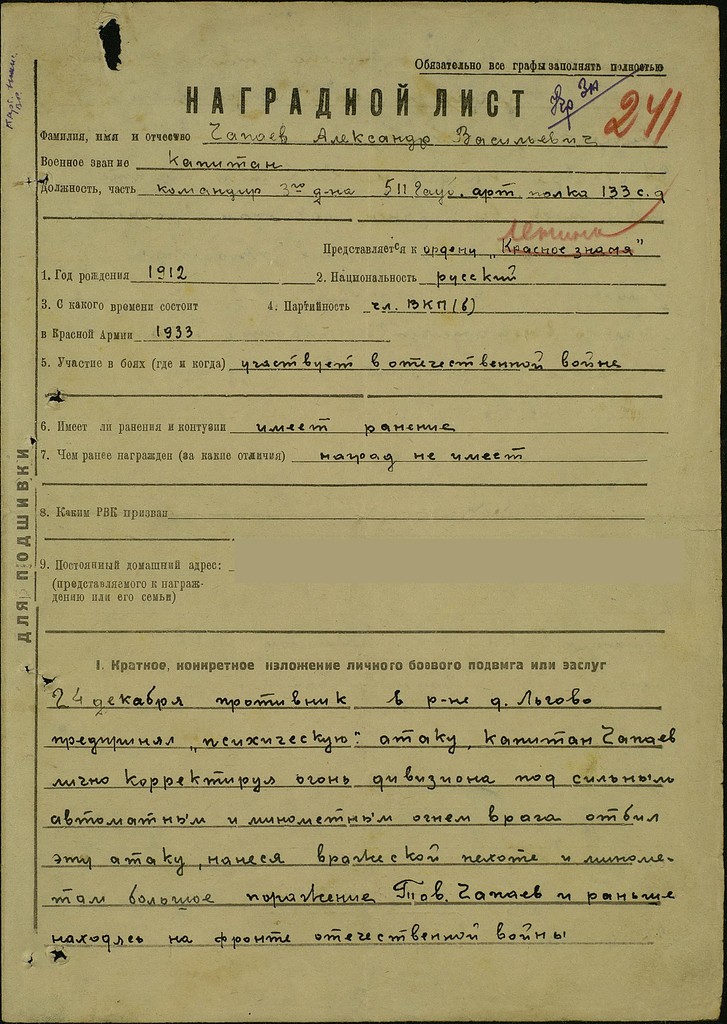 Обязательно все графы заполнять полностью
НАГРАДНОЙ ЛИСТ
Кр Зн
241
Фамилия, имя и отчество Чапаев Александр Васильевич
Военное звание Капитан
Должность, часть командир 3го д-на 511 гауб. арт. полка 133 с.д
Ленина
Представляется к ордену „Красное знамя"
1. Год рождения 1912 2. Национальность русский
3. С какого времени состоит 4. Партийность чл. ВКП(б)
в Красной Армии 1933
5. Участие в боях (где и когда) участвует в отечественной войне
6. Имеет ли ранения и контузии имеет ранение
7. Чем ранее награжден (за какие отличия) наград не имеет
8. Каким РВК призван
9. Постоянный домашний адрес:
(представляемого к награж-
дению или его семьи)
ДЛЯ ПОДШИВКИ
I. Краткое, конкретное изложение личного боевого подвига или заслуг
24 декабря противник в р-не д. Льгово
предпринял „психическую" атаку, капитан Чапаев
лично корректируя огонь дивизиона под сильным
автоматным и минометным огнем врага отбил
эту атаку, нанеся вражеской пехоте и миноме-
там большое поражение Тов. Чапаев и раньше
находясь на фронте отечественной войны